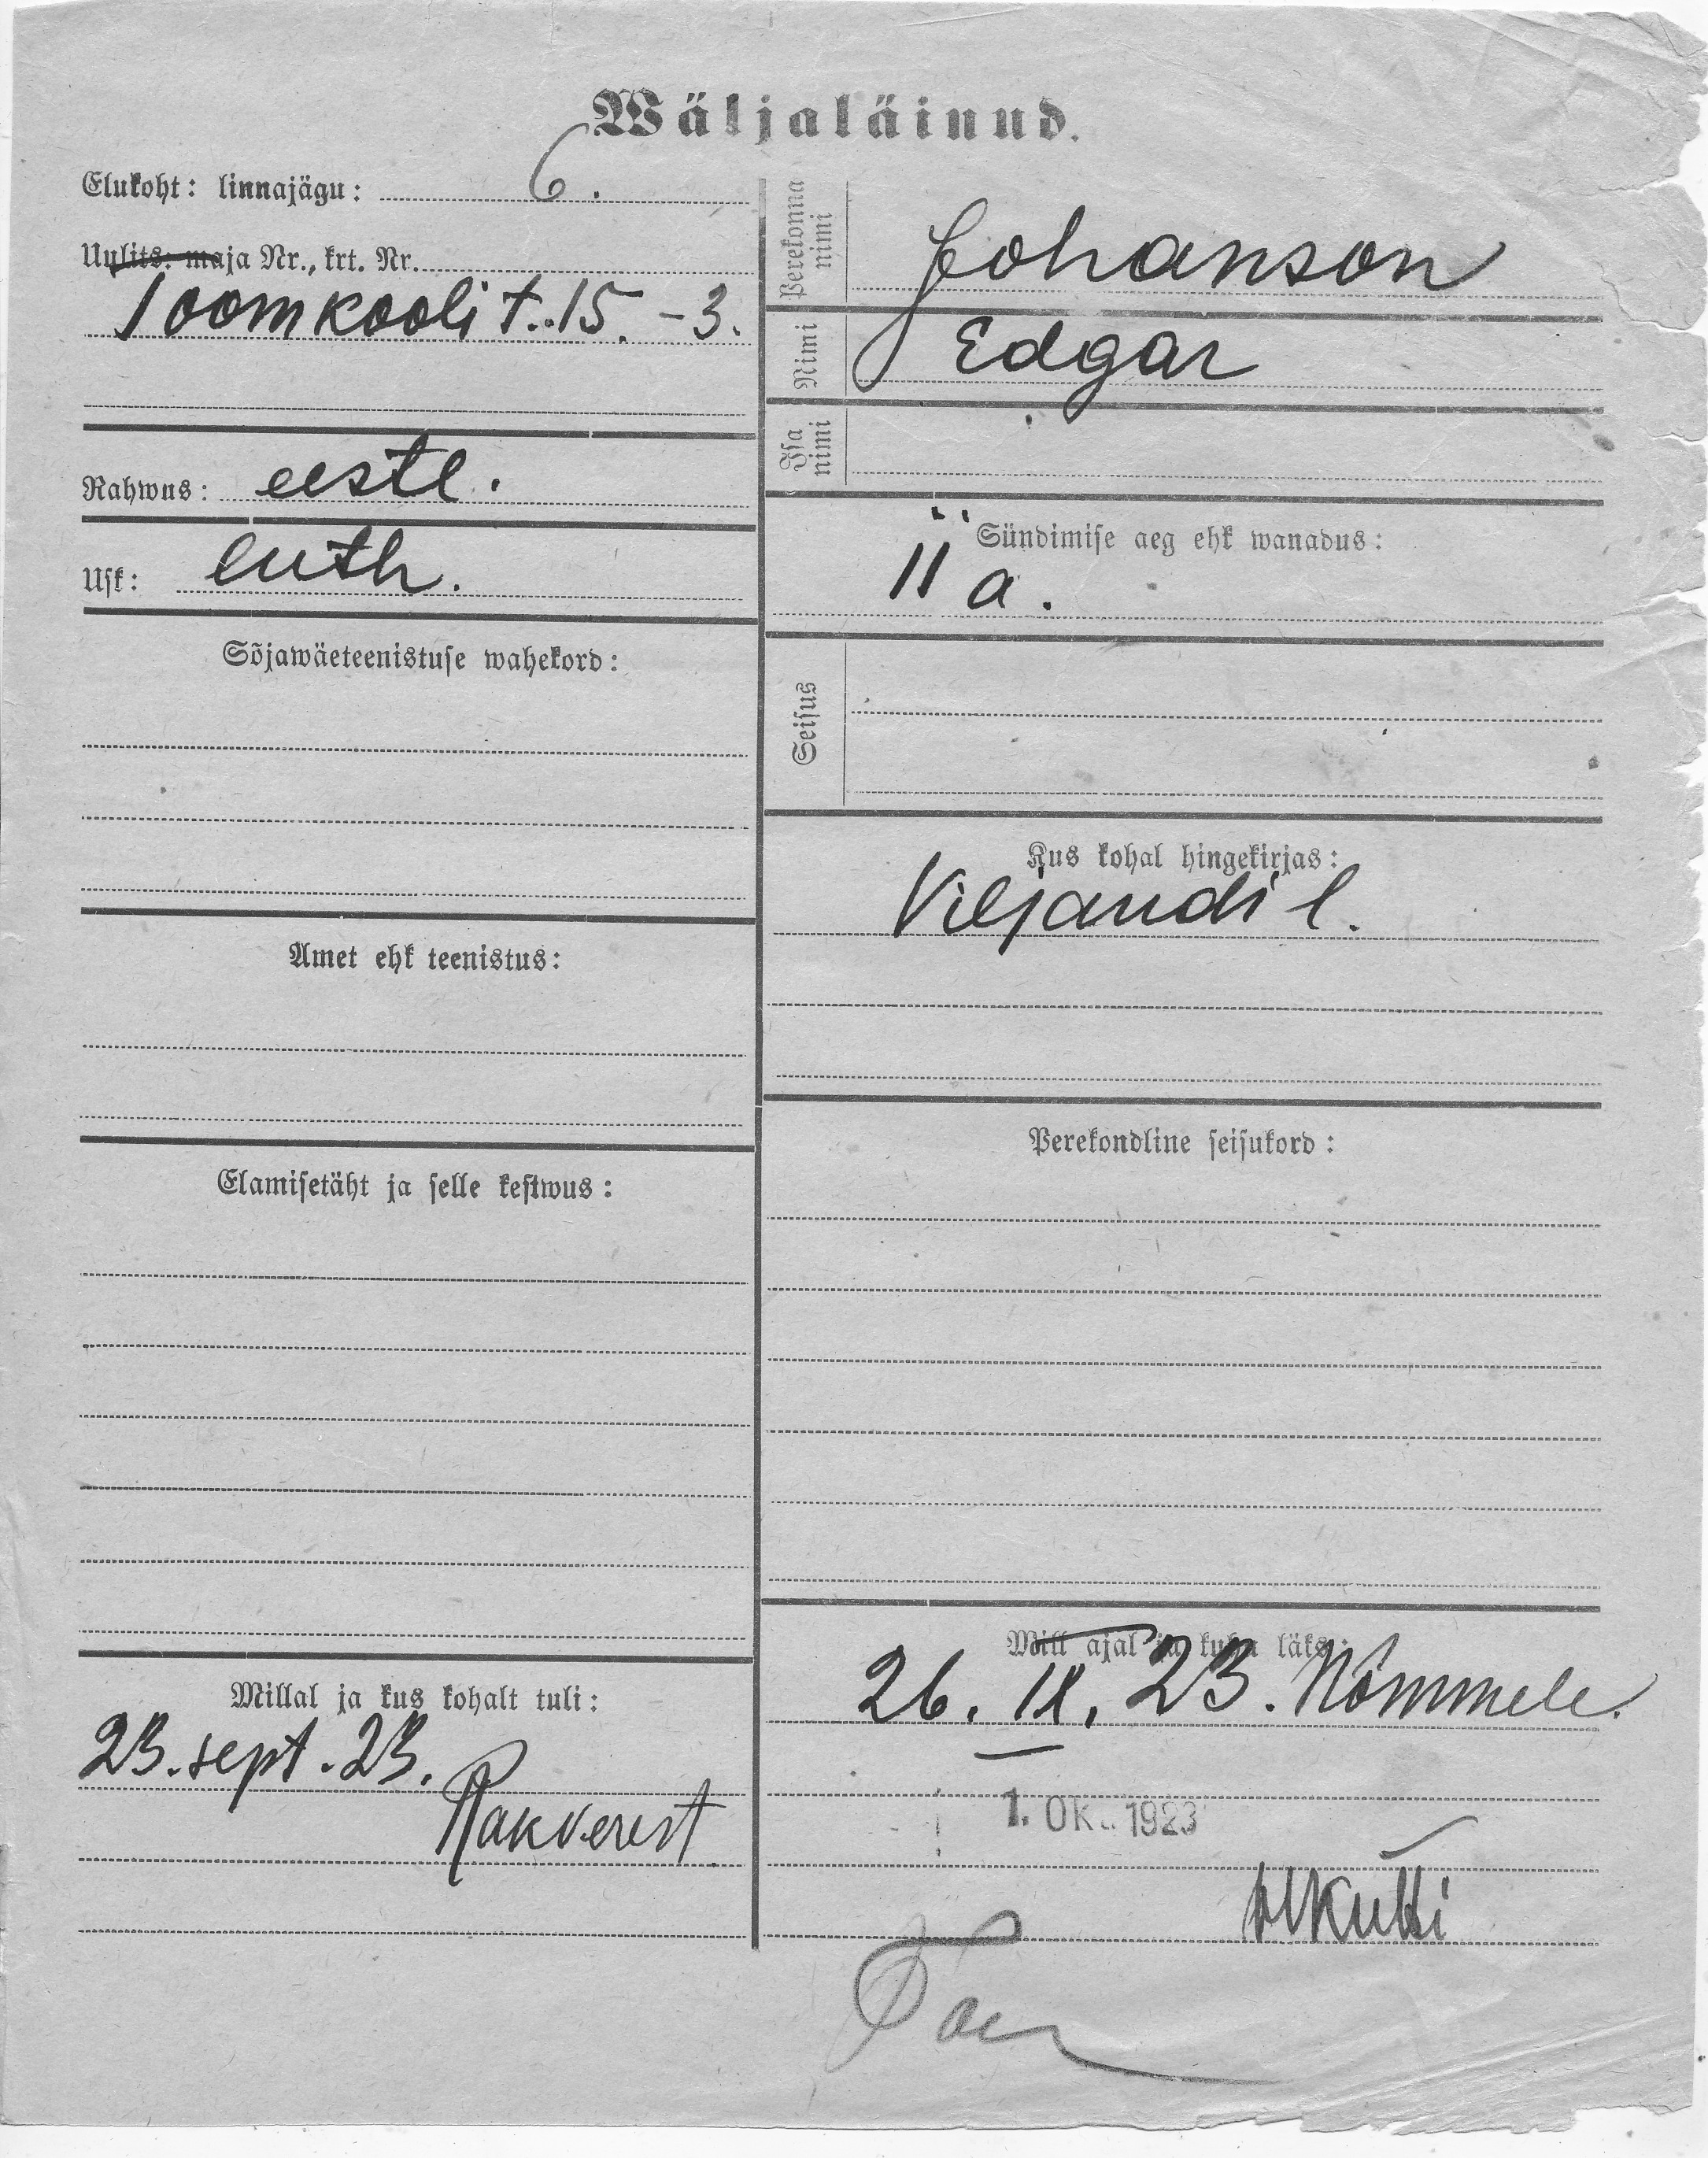 Wäljaläinud.
Elukoht: linnajägu: 6.
Uulits: maja Nr., krt. Nr.
Toomkooli t. 15. - 3.
Rahwus: eestl.
Usk: luth.
Sõjawäeteenistuse wahekord:
Amet ehk teenistus:
Elamisetäht ja selle kestwus:
Millal ja kus kohalt tuli:
23. sept. 23.
Rakverest.
Perekonna nimi Johanson
Nimi Edgar
Isa nimi
Sündimise aeg ehk wanadus:
11 a.
Seisus
Kus kohal hingekirjas:
Viljandi l.
Perekondline seisukord:
Mill ajal ja kuhu läks:
26. IX. 23. Nõmmele.
1. Okt. 1923